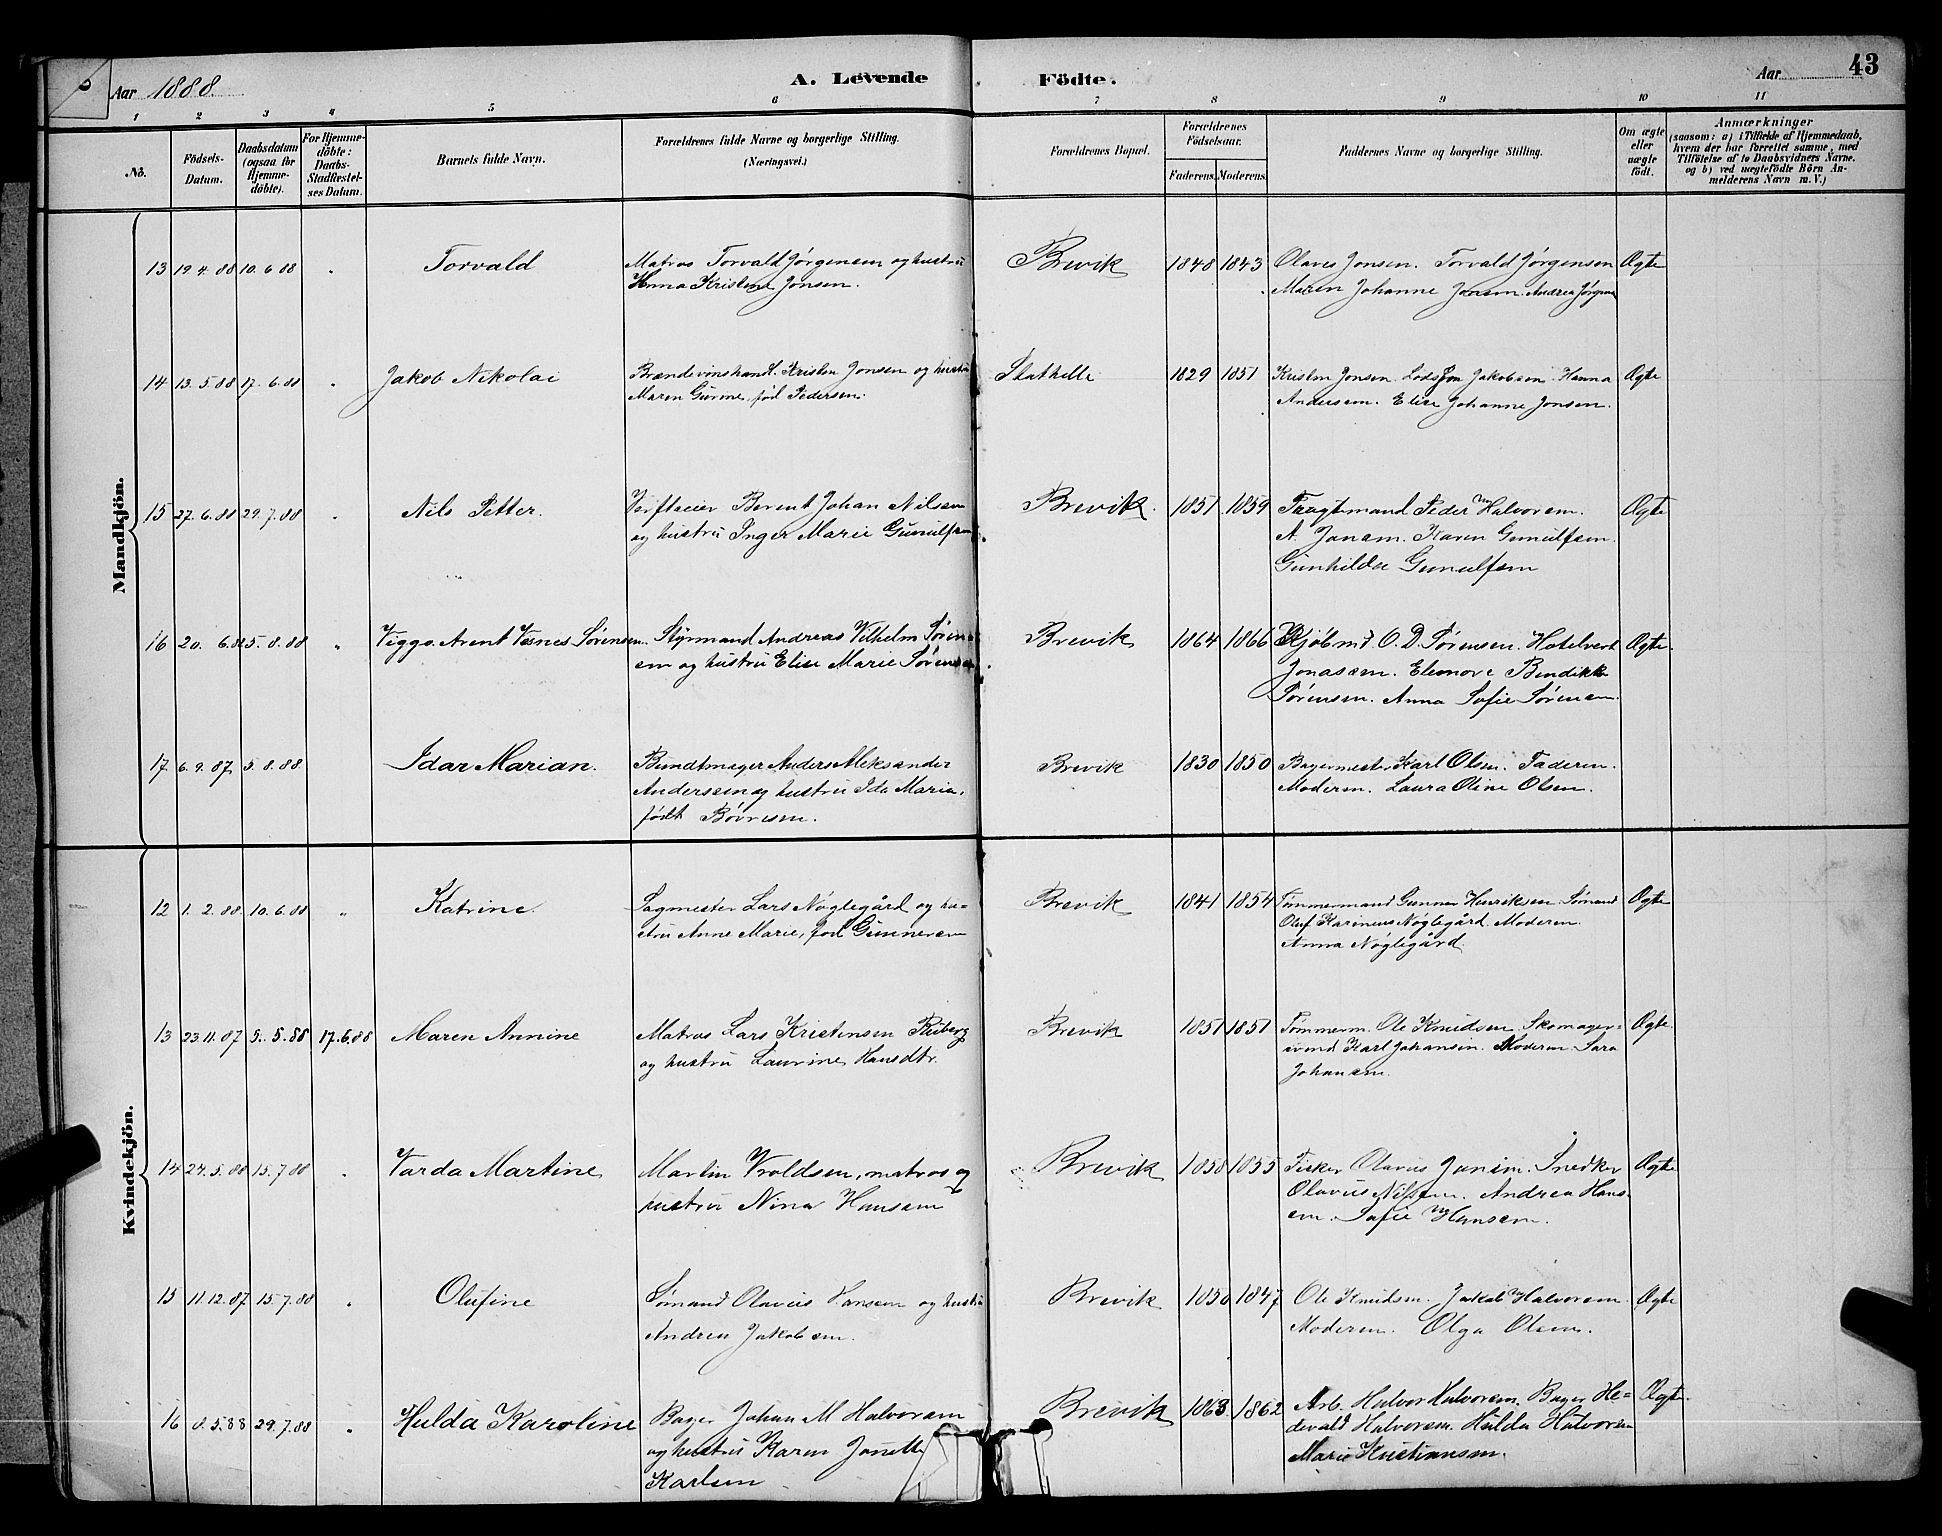 Aar 1888.
A. Levende Födte.
Aar 43
1 2 3 4 5 6 7 8 9 10 11
No.
Födsels-Datum.
Daabsdatum (ogsaa for Hjemme-döbte).
For Hjemme-döbte: Daabs-Stadfæstel-ses Datum.
Barnets fulde Navn.
Forældrenes fulde Navne og borgerlige Stilling.
(Næringsvei.)
Forældrenes Bopæl.
Forældrenes Födselsaar.
Faderens. Moderens.
Faddernes Navne og borgerlige Stilling.
Om ægte eller uægte födt.
Anmærkninger
(saasom: a) i Tilfælde af Hjemmedaab,
hvem der har forrettet samme, med
Tilföielse af to Daabsvidners Navne.
og b) ved uægtefödte Börn An-
melderens Navn m. V.)
Mandkjön.
13 19.4.88 10.6.88 " Torvald Matros Torvald Jørgensen og hustru Brevik 1848 1843 Olaves Jonsen. Torvald Jørgensen Ægte
Kristen Jonsen. Maren Johanne Jonsen. Andrea
14 13.5.88 17.6.88 " Jakob Nikolai Brændevinshandl. Kristen Jonsen og hustru Stathelle 1829 1851 Kristen Jonsen. Lods Jakobsen Hanna Ægte
Maren Gurine, fød Pedersen. Andersen. Elise Johanne Jonsen.
15 27.6.88 29.7.88 " Nils Petter. Verftseier Berent Johan Nilsen Brevik. 1851 1859 Fragtemand Peder Halvorsen. Ægte
og hustru Inger Marie Gunulfsen A. Jansen. Karen Gunulfsen.
Gunhilde Gunulfsen
16 20.6.88 5.8.88 " Viggo Arent Sørensen. Styrmand Andreas Vilhelm Søren- Brevik 1864 1866 Kjøbmd. O. D. Sørensen. Hotelvert Ægte.
sen og hustru Elise Marie Sørensen Jonassen. Eleonore Bendikte
Sørensen. Anna Sofie Sørensen.
17. 6.9.87. 5.8.88 Idar Marian. Bundtmager Anders Aleksander Brevik 1830 1850 Bagermester Karl Olsen. Faderen.
Andersen og hustru Ida Maria, Moderen. Laura Oline Olsen.
født
Kvindekjön.
12 1.2.88. 10.6.88 " Katrine. Sagmester Lars Nøglegård og hu- Brevik 1841 1854 Tømmermand Gunner Henriksen Sømand Ægte
stru Anne Marie, fød Gunnersen Oluf Karinius Nøglegård. Moderen.
Anna Nøglegård.
13 23.11.87 5.5.88 17.6.88 Maren Annine Matros Lars Kristensen Brevik 1851 1851 Tømmerm. Ole Knudsen. Skomager- Ægte
og hustru Laurine Hansdtr. svend Karl Johansen. Moderen. Sara
Johansen.
14 24.5.88 15.7.88 " Varda Martine Martin Vroldsen, matros og Brevik 1858 1855 Fisker Olavus Jansen. Snedker Ægte
hustru Nina Hansen Olavus Nilsen. Andrea Hans-
en. Sofie Hansen.
15 11.12.87 15.7.88 " Olufine Sømand Olavus Hansen og hustru Brevik 1850 1847 Ole Knudsen. Jakob Halvorsen. Ægte
Andrea Jakobsen. Moderen. Olga Olsen.
16 8.5.88 29.7.88 " Hulda Karoline Bager Johan M Halvorsen Brevik 1863 1862 Arb. Halvor Halvorsen. Bager He- Ægte.
og hustru Karen Jonette devald Halvorsen. Hulda Halvorsen
Karlsen Marie Kristiansen.